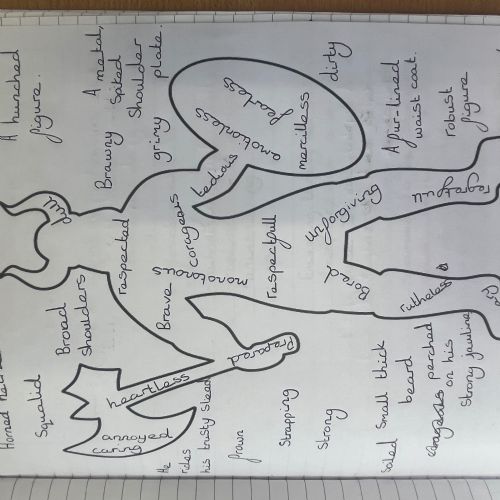 A hunched
figure.
A metal,
Spiked
Shoulder
plate.
Brawny
grimy
dirty
A fur-lined
waist coat.
robust
figure
fearless
emotionless
merciless
tedious
regretfull
unforgiving
corageous
respectfull
respected
monotonous
Bored
ruthless
Brave
Broad
shoulders
Prepared
heartless
annoyed
caring
Squalid
He
rides
his trusty steed
frown
Strapping
Strong
Small thick
beard
perched
on his
Strong jawline